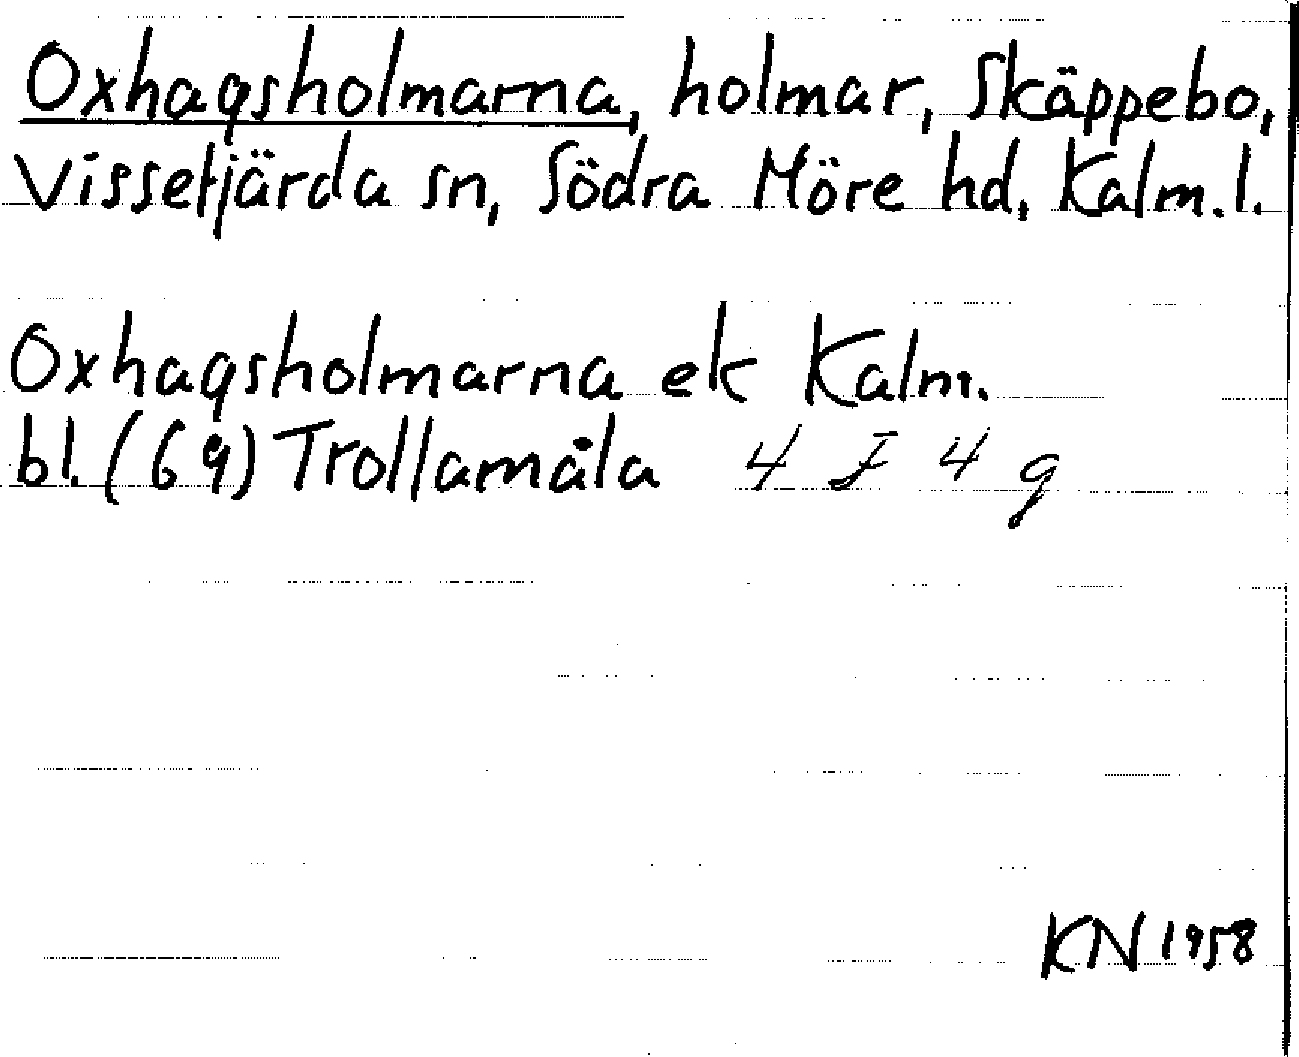 Oxhagsholmarna, holmar, Skäppebo,
Vissefjärda sn, Södra Möre hd, Kalm.l.
Oxhagsholmarna ek Kalm.
bl. (69) Trollamåla 4 F 4 g
KN 1958